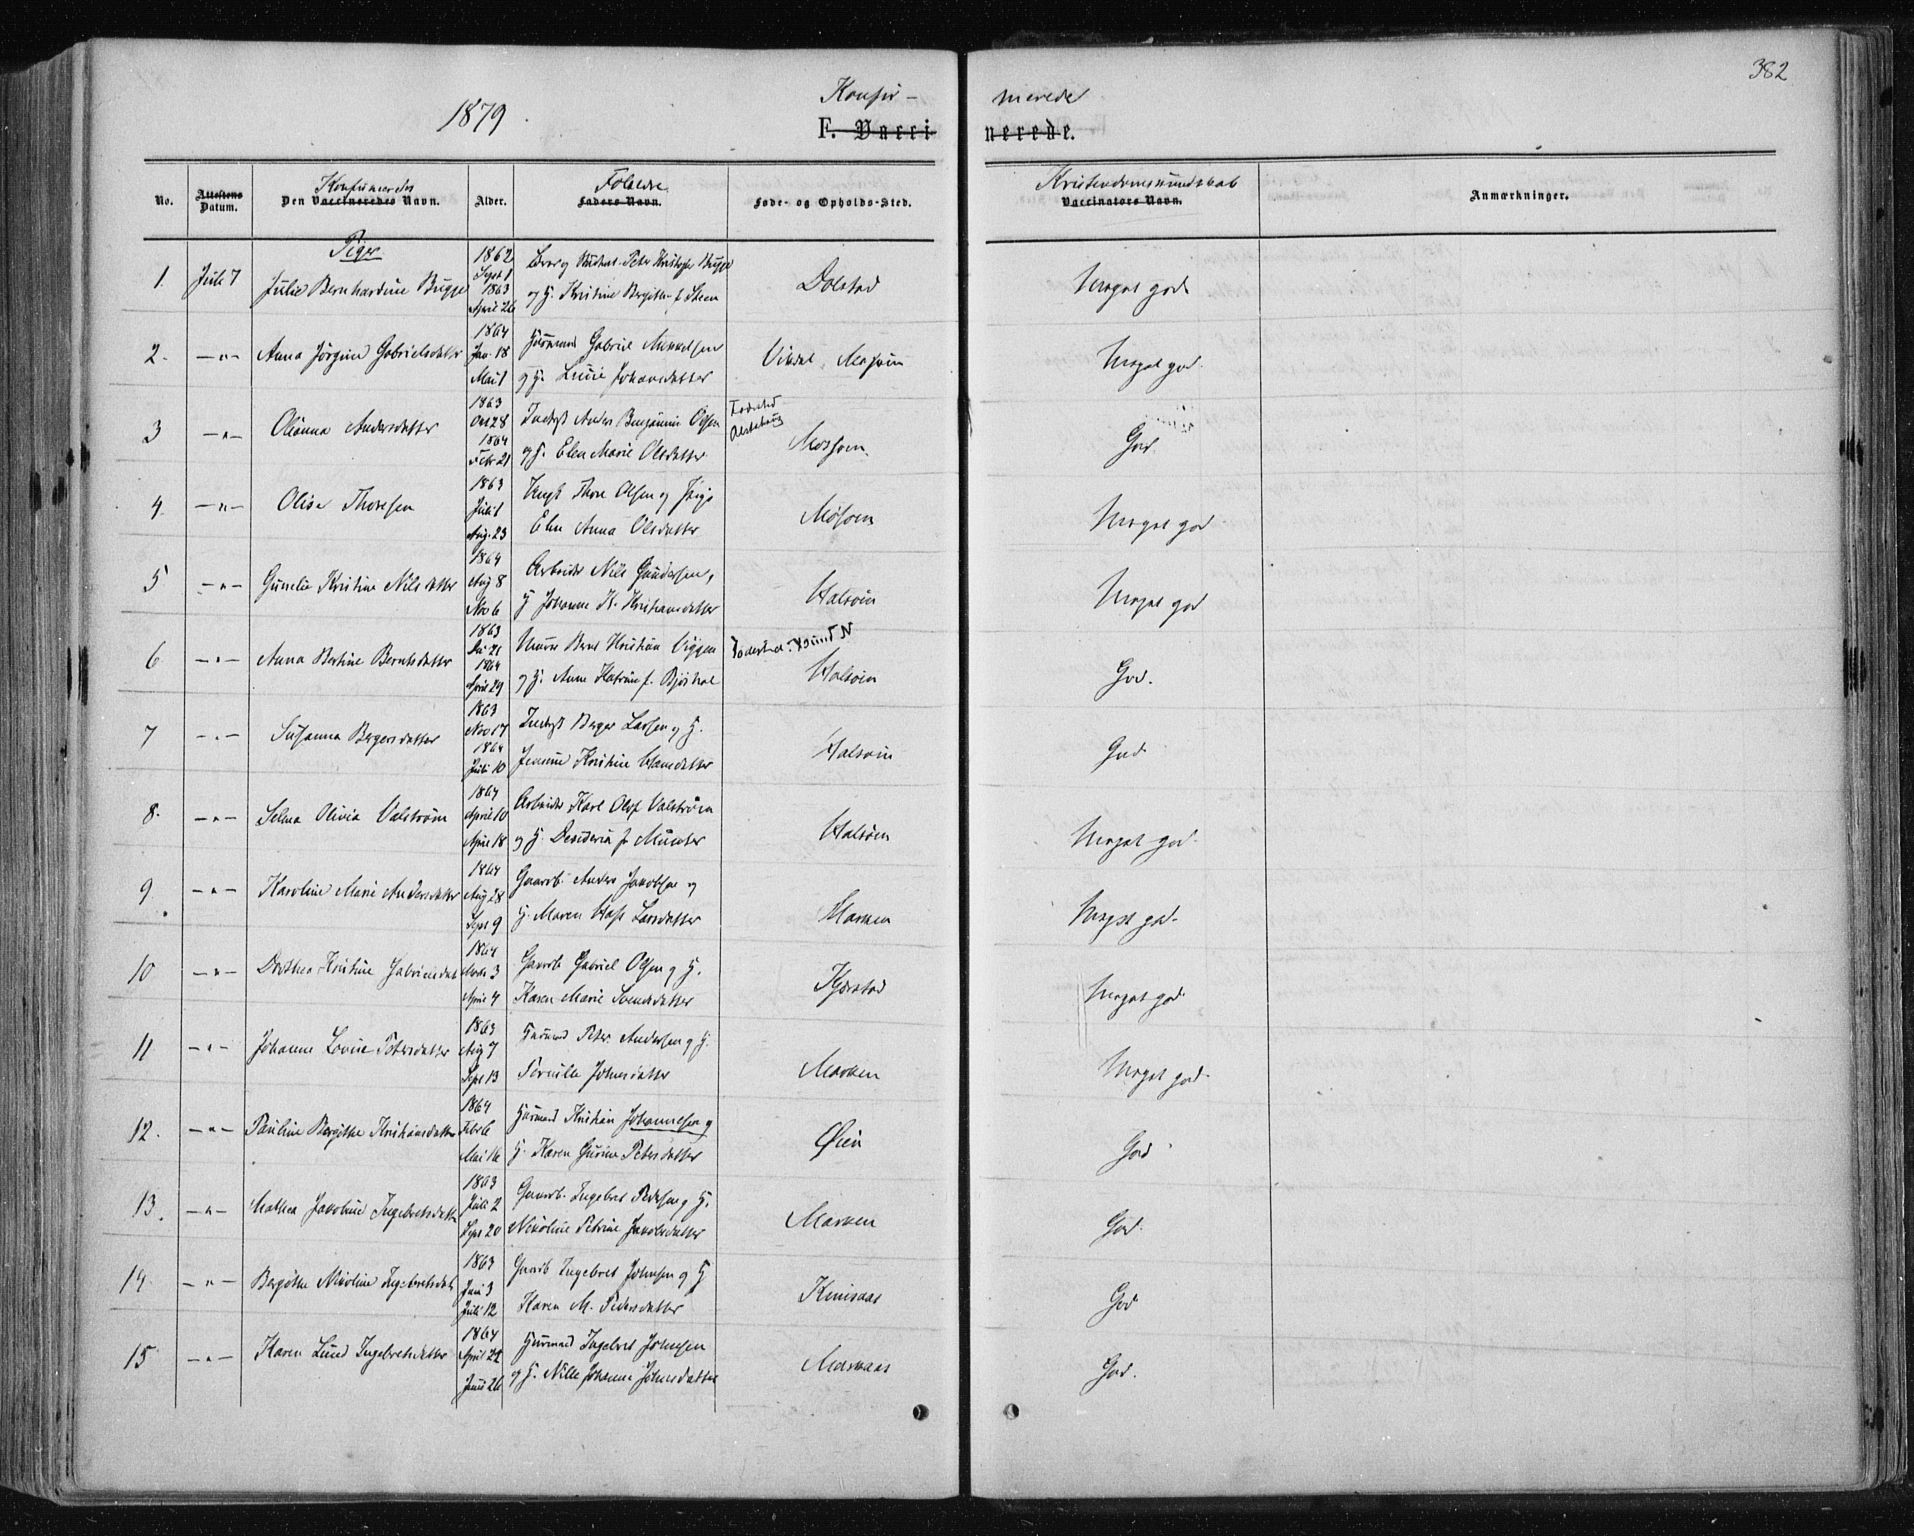 382
1879
Konfir- merede
F. Vacci- nerede.
No. Attestens Datum. Konfirmeredes Den Vaccineredes Navn. Alder. Forældre Faders Navn. Føde- og Opholds-Sted. Kristendomskundskab Vaccinators Navn. Anmærkninger.
Piger
1. Juli 7 Julie Bernhardine Bugge 1862 Sept 1 1863 April 26
og H. Kristine Bergitte f. Steen Dolstad Meget god
2. —"— Anna Jørgine Gabrielsdatter 1864 Jan. 18 Mai 1 Huusmand Gabriel Mikkelsen
og H. Lucie Johansdatter Vikdal Mosjøen Meget god.
3 —"— Olianna Andersdatter 1863 Oct 28 1864 Febr 21 Inderst Anders Benjamin Olsen
og H. Elen Marie Olsdatter Fødested Alstahaug Mosjøen. God.
4. —"— Olise Thoresen 1863 Juli 1 Aug. 23 Ungk. Thore Olsen og Pige
Elen Anna Olsdatter Mosjøen Meget god
5 —"— Gunelie Kristine Nilsdatter 1864 Aug 8 Nov 6 Arbeider Nils Gundersen,
H. Johanne K. Kristiansdatter Halsøen Meget god
6 —"— Anna Bertine Berntsdatter 1863 1864 April 29 Bernt Kristian Viggen
og H. Anne Katrine f. Fødested: Halsøen God.
7 —"— Susanna Bergersdatter 1863 Nov 17 1864 Juli 10 Inderst Berger Larsen og H.
Jensine Kristine Hansdatter Halsøen God
8. —"— Selma Olivia Valstrøm 1864 April 10 April 18 Arbeider Karl Olof Valstrøm
og H. Desideria f. Münter Halsøen Meget god.
9 —"— Karoline Marie Andersdatter 1864 Aug 28 Sept 9 Gaardb. Anders Jakobsen og
H. Maren Larsdatter Marken Meget god.
10 —"— Dorthea Kristine Gabrielsdat 1864 Marts 3 April 4 Gaardb. Gabriel Olsen og H.
Karen Marie Svendsdatter Kjærstad Meget god
11 —"— Johanne Lovise Petersdatter 1863 Aug 7 Sept 13 Huusmand Peter Andersen og H.
Pernille Johnsdatter Marken Meget god.
12. —"— Pauline Bergitte Kristiansdatter 1864 Febr 6 Mai 16 Huusmand Kristian Johannesen og
H. Karen Gurine Petersdatter Øien God
13. —"— Mathea Jakobine Ingebretsdatter 1863 Juli 2 Sept 20 Gaardb. Ingebret Pedersen og H.
Nikoline Petrine Jakobsdatter Marken God.
14. —"— Bergitte Nikoline Ingebretsdat 1863 Juni 3 Juli 12 Gaardb Ingebret Johnsen og H
Karen M. Pedersdatter God
15 —"— Karen Lund Ingebretsdatter 1864 April 22 Juni 26 Huusmand Ingebret Johnsen
og H. Nille Johanne Johnsdatter God.